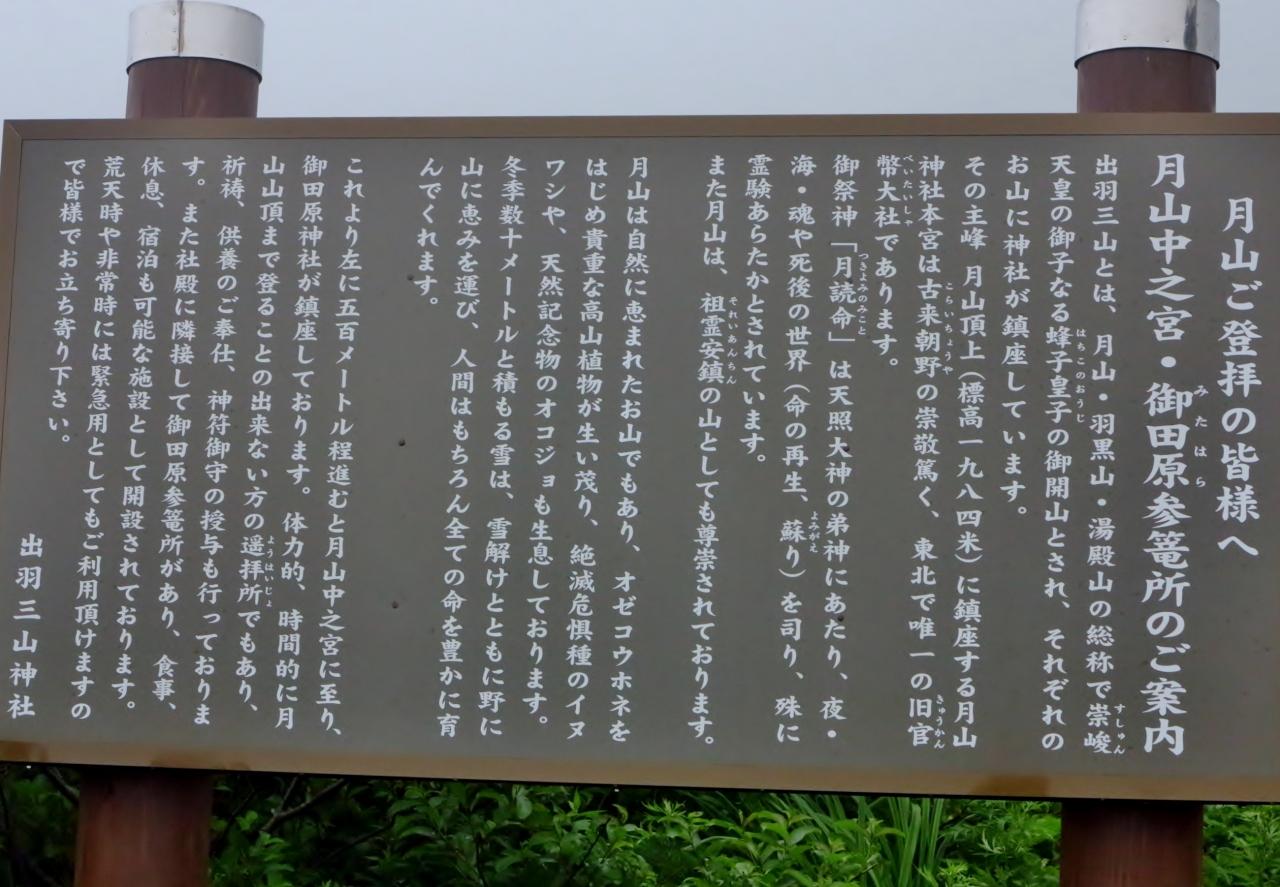 月山ご登拝の皆様へ
月山中之宮・御田原参篭所のご案内
みたはら
出羽三山とは、月山・羽黒山・湯殿山の総称で崇峻
すしゅん
天皇の御子なる蜂子皇子の御開山とされ、それぞれの
はちこのおうじ
お山に神社が鎮座しています。
その主峰 月山頂上(標高一九八四米)に鎮座する月山
神社本宮は古来朝野の崇敬篤く、東北で唯一の旧官
こらいちょうや
きゅうかん
幣大社であります。
べいたいしゃ
御祭神「月読命」は天照大神の弟神にあたり、夜・
つきよみのみこと
海・魂や死後の世界(命の再生、蘇り)を司り、殊に
よみがえ
霊験あらたかとされています。
また月山は、祖霊安鎮の山としても尊崇されております。
それいあんちん
月山は自然に恵まれたお山でもあり、オゼコウホネを
はじめ貴重な高山植物が生い茂り、絶滅危惧種のイヌ
ワシや、天然記念物のオコジョも生息しております。
冬季数十メートルと積もる雪は、雪解けとともに野に
山に恵みを運び、人間はもちろん全ての命を豊かに育
んでくれます。
これより左に五百メートル程進むと月山中之宮に至り、
御田原神社が鎮座しております。体力的、時間的に月
山山頂まで登ることの出来ない方の遥拝所でもあり、
ようはいじょ
祈祷、供養のご奉仕、神符御守の授与も行っておりま
す。また社殿に隣接して御田原参篭所があり、食事、
休息、宿泊も可能な施設として開設されております。
荒天時や非常時には緊急用としてもご利用頂けますの
で皆様でお立ち寄り下さい。
出羽三山神社